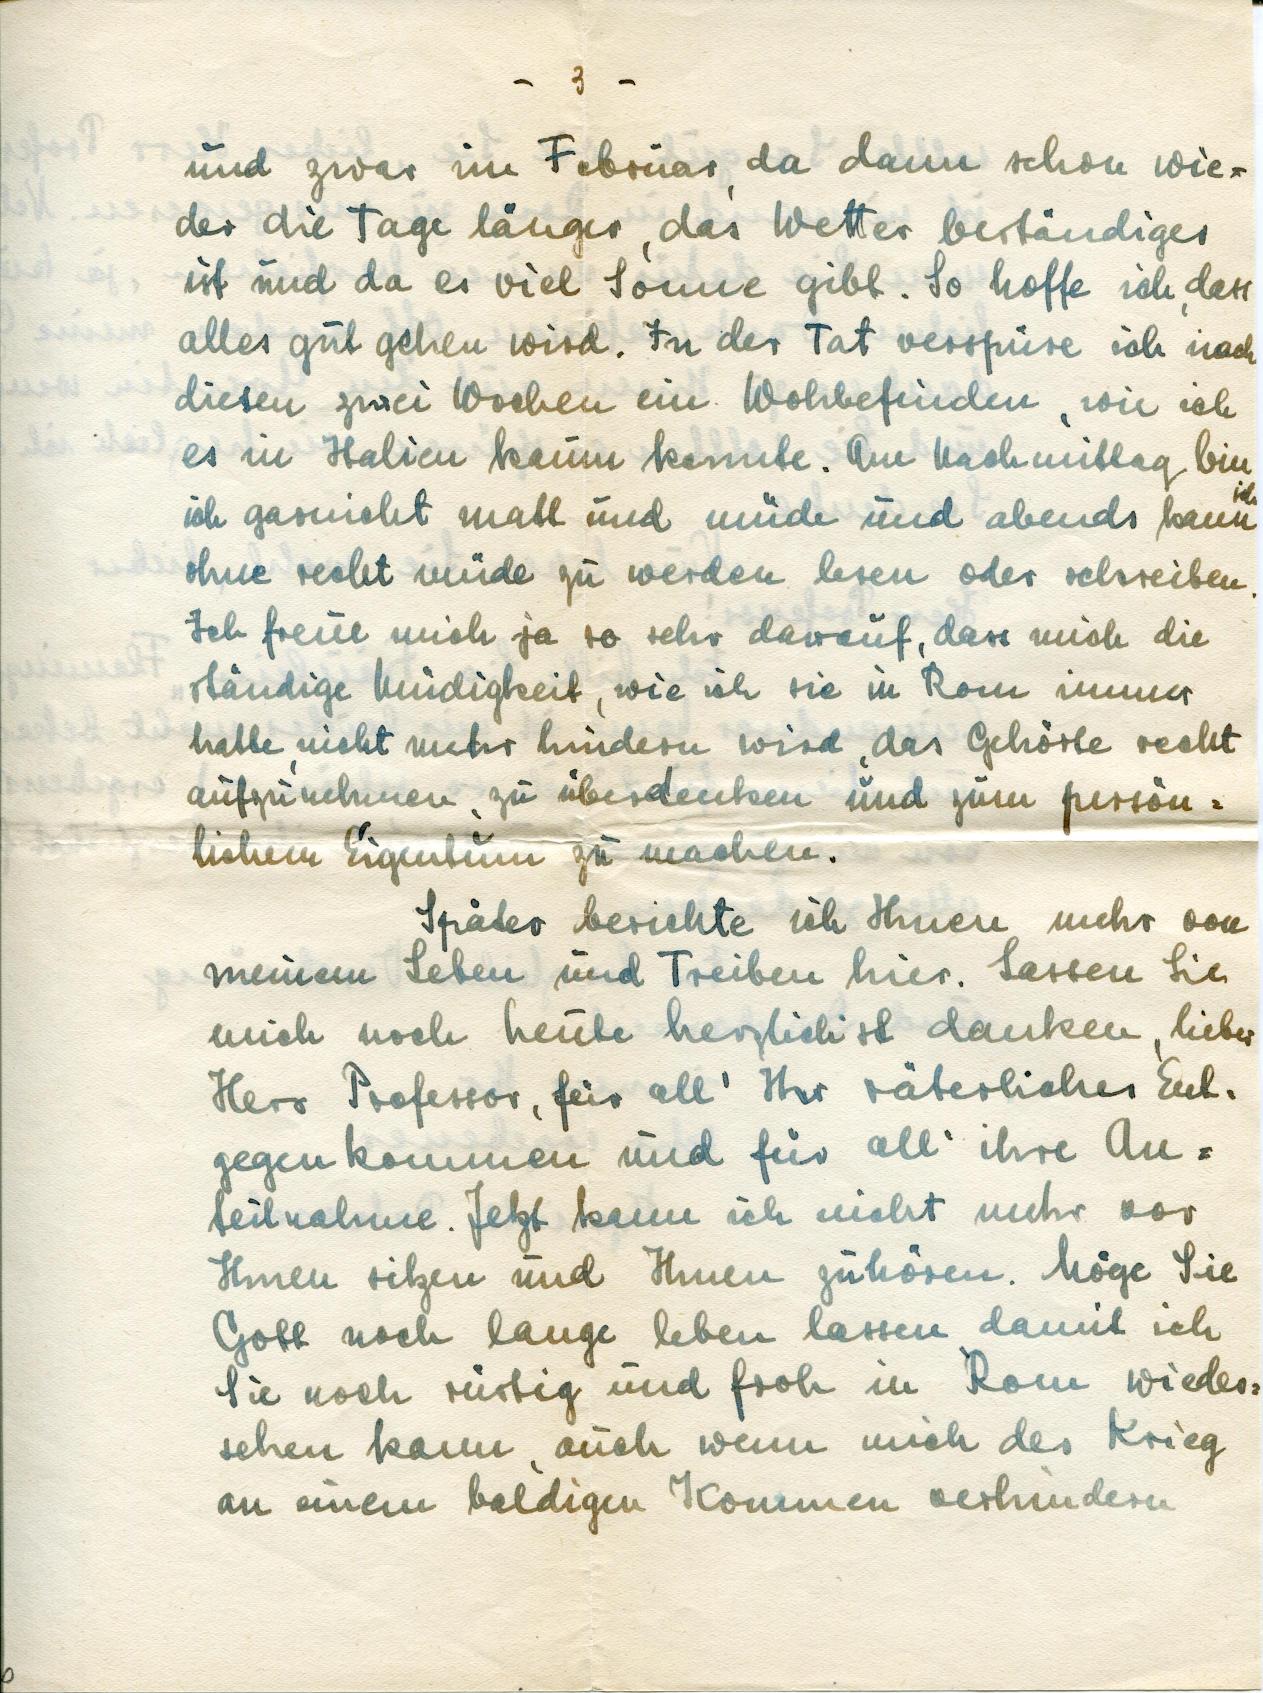 - 3 -
und zwar im Februar, da dann schon wie=
der die Tage länger, das Wetter beständiger
ist und da es viel Sonne gibt. So hoffe ich, dass
alles gut gehen wird. In der Tat verspüre ich nach
diesen zwei Wochen ein Wohlbefinden, wie ich
es in Italien kaum kannte. Am Nachmittag bin
ich garnicht matt und müde und abends kann ich
ohne recht müde zu werden lesen oder schreiben.
Ich freue mich ja so sehr darauf, dass mich die
ständige Müdigkeit, wie ich sie in Rom immer
hatte, nicht mehr hindern wird, das Gehörte recht
aufzunehmen, zu überdenken und zum persön=
lichem Eigentum zu machen.
Später berichte ich Ihnen mehr von
meinem Leben und Treiben hier. Lassen Sie
mich noch heute herzlichst danken, lieber
Herr Professor, für all' Ihr väterliches Ent-
gegenkommen und für all' ihre An=
teilnahme. Jetzt kann ich nicht mehr vor
Ihnen sitzen und Ihnen zuhören. Möge Sie
Gott noch lange leben lassen, damit ich
Sie noch rüstig und froh in Rom wieder=
sehen kann, auch wenn mich der Krieg
an einem baldigen Kommen verhindern